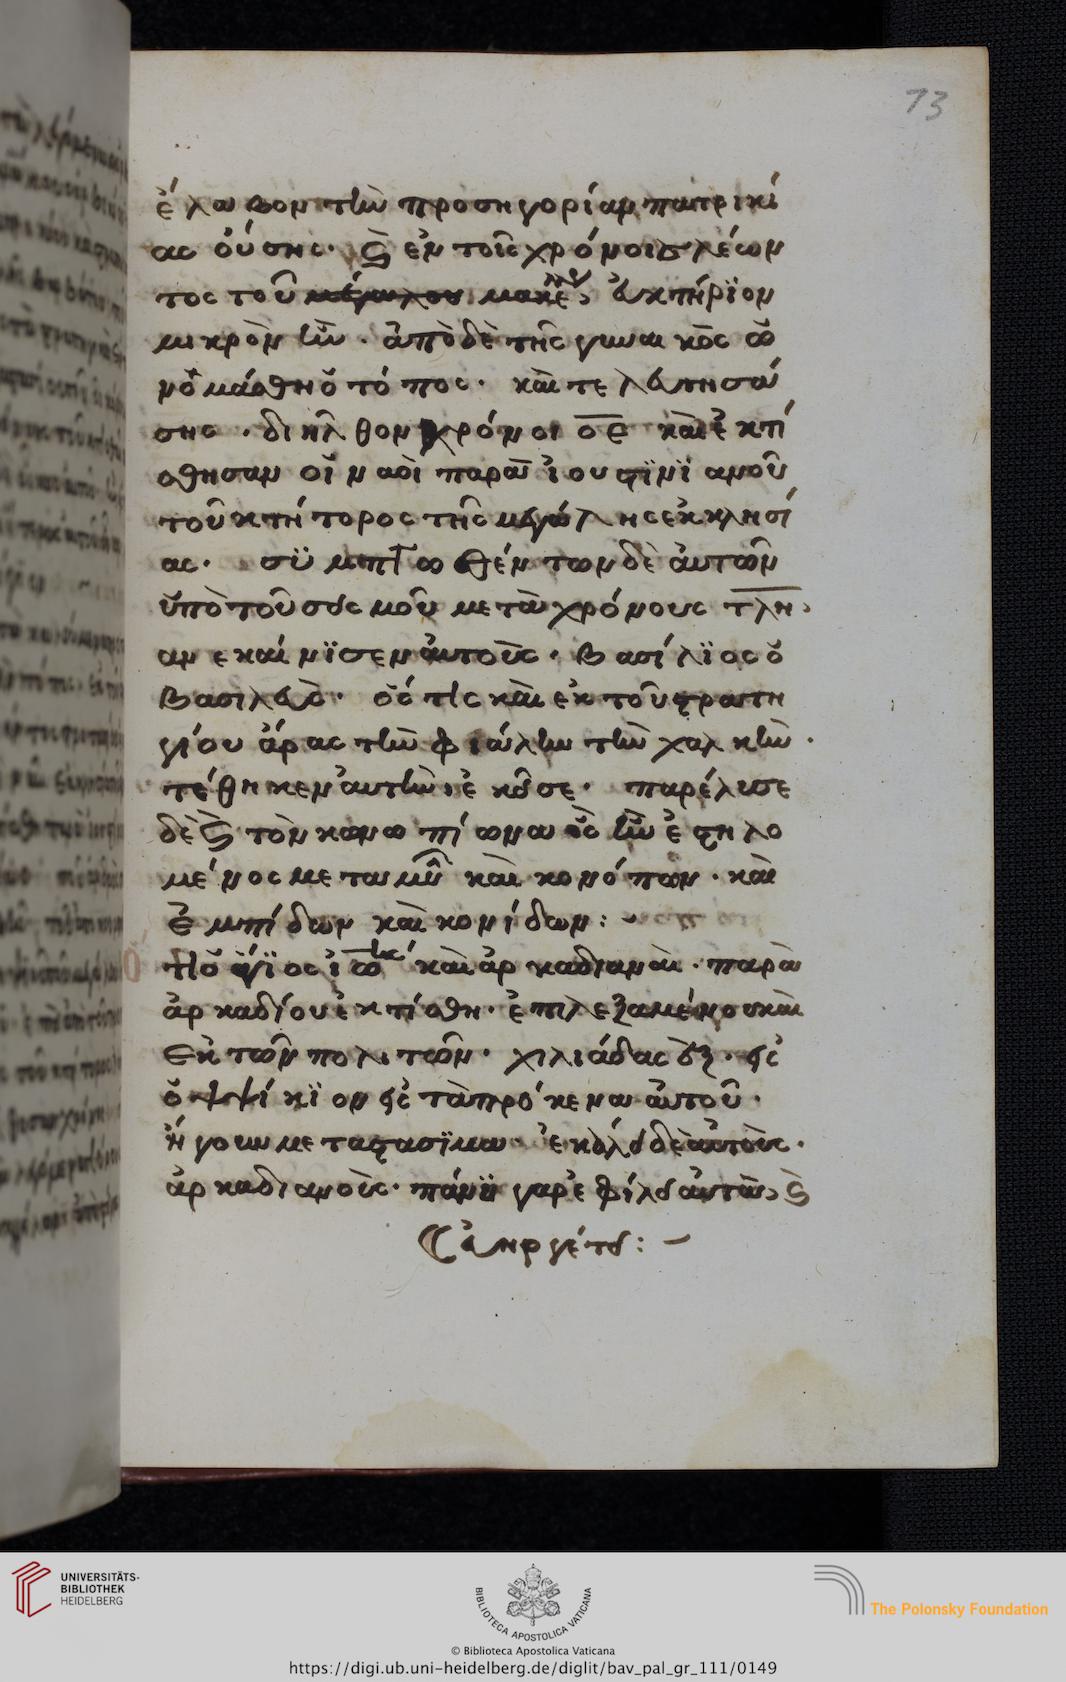 73
ἔλαβον τὴν προσηγορίαν πατρικί
ας οὔσης· ἐν τοῖς χρόνοις λέων
τος τοῦ μεγάλου μακέλ εὐκτήριον
μικρὸν ἦν · ἀπὸ δὲ τῆς γυναικὸς ὠ
νομάσθη ὁ τόπος · καὶ τελευτησά
σης · διῆλθον χρόνοι οε καὶ ἐκτί
σθησαν οἱ ναοὶ παρὰ ἰουστινιανοῦ
τοῦ κτήτορος τῆς μεγάλης ἐκκλησί
ας · συμπτωθέντων δὲ αὐτῶν
ὑπὸ τοῦ σεισμοῦ μετὰ χρόνους τλη
ανεκαίνισεν αὐτοὺς · βασίλειος ὁ
βασιλεὺς · ὅστις καὶ ἐκ τοῦ στρατη
γίου ἄρας τὴν φιάλην τὴν χαλκὴν ·
τέθηκεν αὐτὴν ἐκεῖσε · παρέλυσε
δὲ τὸν κανωπίωνα ὃς ἦν ἐστηλο
μένος μετὰ μυῶν καὶ κονόπων · καὶ
ἐμπίδων καὶ κονίδων :
ὁ ἅγιος ἰω καὶ ἀρκαδιαναὶ · παρὰ
ἀρκαδίου ἐκτίσθη · ἐπιλεξαμένου καὶ
ἐκ τῶν πολιτῶν · χιλιάδας
ὀψίκιον εἰς τὰ πρόκενσα αὐτοῦ ·
ἤγουν μεταστάσιμα · ἐκάλει δὲ αὐτοὺς ·
ἀρκαδιανοὺς · πάνυ γὰρ ἐφίλει αὐτοὺς
εὐηργέτει :
UNIVERSITÄTS-
BIBLIOTHEK
HEIDELBERG
BIBLIOTECA APOSTOLICA VATICANA
The Polonsky Foundation
© Biblioteca Apostolica Vaticana
https://digi.ub.uni-heidelberg.de/diglit/bav_pal_gr_111/0149